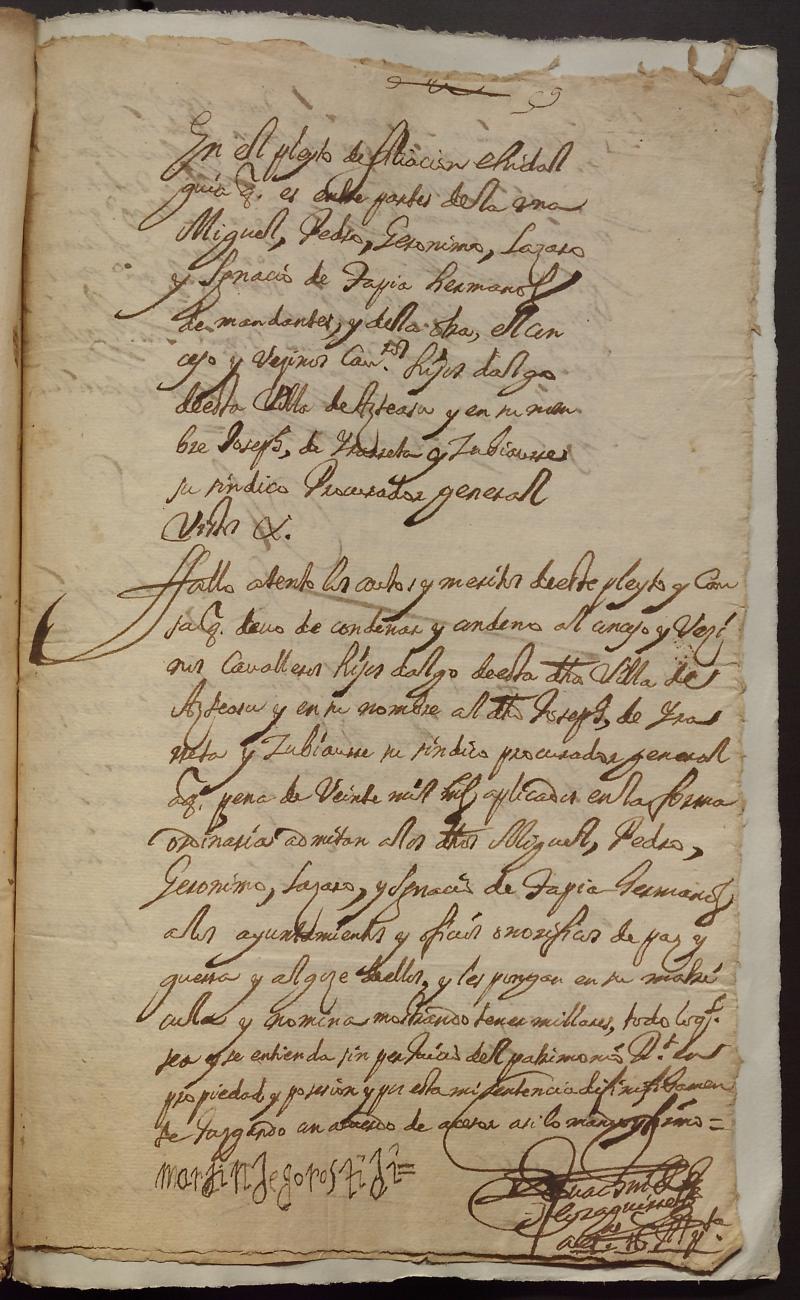 59
En el pleyto de filiacion e hidal
guia q. es entre partes de la vna
Miguel, Pedro, Geronimo, Lazaro
y Ygnacio de Tapia hermanos
demandantes, y de la otra, el con
cejo y Vezinos Cavros hijos dalgo
de esta Villa de Azteasu y en su nom
bre Joseph, de Yrarreta y Zubiaurre
su sindico Procurador general
Vistos &.
Fallo atento los autos y meritos de este pleyto y Cau
sa q. devo de condenar y condeno al concejo y Vezi
nos Cavalleros hijos dalgo de esta dha Villa de
Azteasu y en su nombre al dho Joseph, de Yrar
reta y Zubiaurre su sindico procurador general
a q. pena de Veinte mil mrs aplicados en la forma
ordinaria admitan a los dhos Miguel, Pedro,
Geronimo, Lazaro, y Ygnacio de Tapia hermanos
a los ayuntamientos y oficios onorificos de paz y
guerra y al goze de ellos, y les pongan en su matri
cula y nomina mostrando tener millares, todo lo q.
sea y se entienda sin perjuicio del patrimonio Rl. en
propiedad y posesion y por esta mi sentencia difinitibamen
te juzgando con acuerdo de acesor asi lo mando y firmo =
Martin de gorostidi =